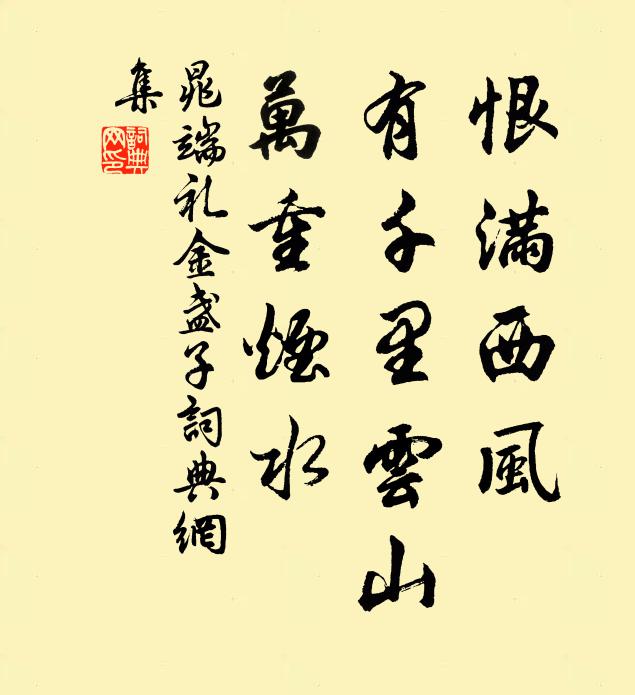 恨满西風
有千里雲山
萬重煙水
晁端礼金盏子詞典網
集
詞典
网印